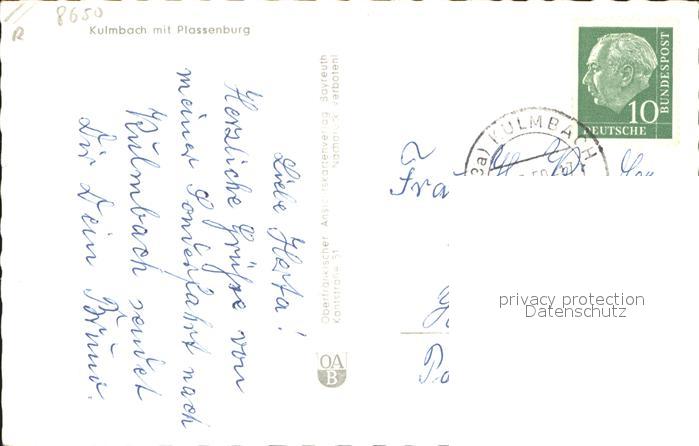 8650
R
Kulmbach mit Plassenburg
Liebe Herta!
Herzliche Grüße von
meiner Sonderfahrt nach
Kulmbach sendet
Dir Dein Bruno.
Oberfränkischer Ansichtskartenverlag Bayreuth
Karlstraße 51 Nachdruck verboten!
OA
B
10
DEUTSCHE
BUNDESPOST
KULMBACH
Fra
privacy protection
Datenschutz